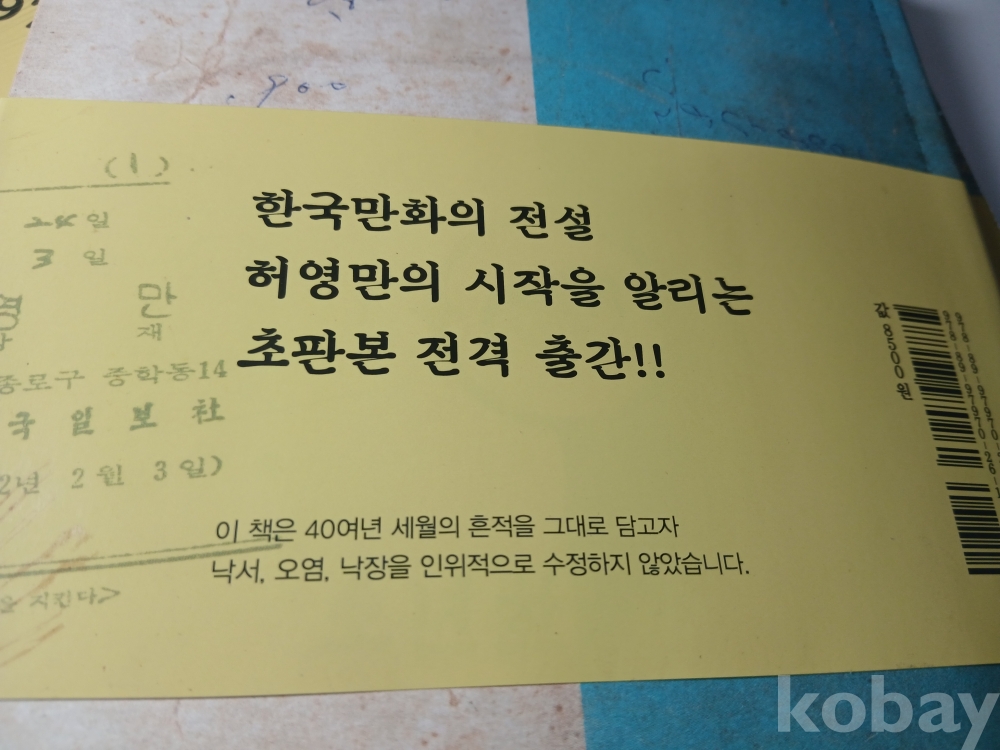 .900
(1)
24일
3일
영 만
재
종로구 중학동14
국 일 보 社
2년 2월 3일)
을 지킨다>
한국만화의 전설
허영만의 시작을 알리는
초판본 전격 출간!!
이 책은 40여년 세월의 흔적을 그대로 담고자
낙서, 오염, 낙장을 인위적으로 수정하지 않았습니다.
값 8500원
kobay